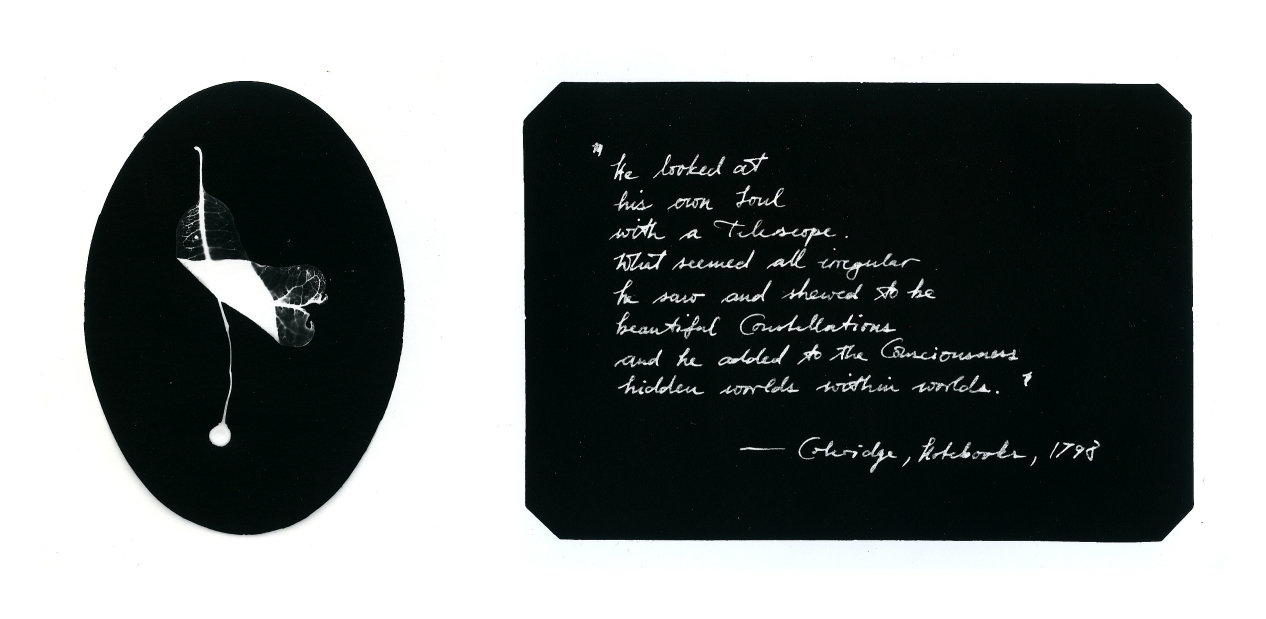 "He looked at
his own Soul
with a Telescope.
What seemed all irregular
he saw and shewed to be
beautiful Constellations
and he added to the Consciousness
hidden worlds within worlds."
— Coleridge, Notebooks, 1798